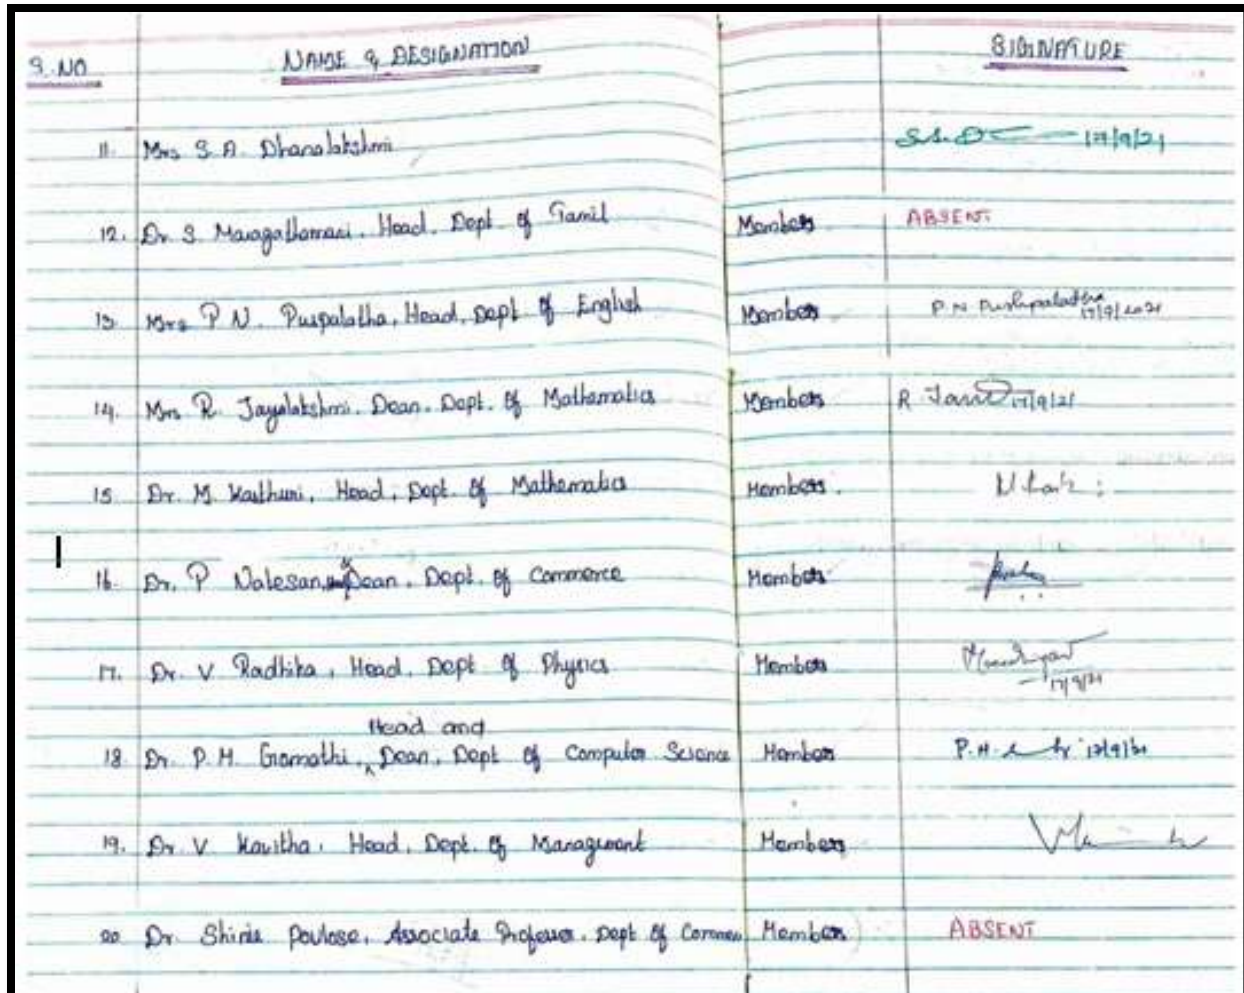 S.NO NAME & DESIGNATION SIGNATURE
11. Mrs S. A. Dhanalakshmi 17/9/21
12. Dr S. Maragathamani, Head, Dept of Tamil Members ABSENT
13 Mrs P N. Puspalatha, Head, Dept of English Members P N Pushpalatha
17/9/2021
14. Mrs R. Jayalakshmi, Dean, Dept. of Mathematics Members R 17/9/21
15 Dr. M. Kasthuri, Head, Dept. of Mathematics Members
16. Dr. P Natesan, Dean, Dept. of Commerce Members
17. Dr. V Radhika, Head, Dept of Physics Members
17/9/21
Head and
18. Dr. P. M. Gomathi, Dean, Dept of Computer Science Members P.M.
19. Dr. V Kavitha, Head, Dept. of Management Members
20 Dr. Shinie Poulose, Associate Professor, Dept of Commer Members ABSENT